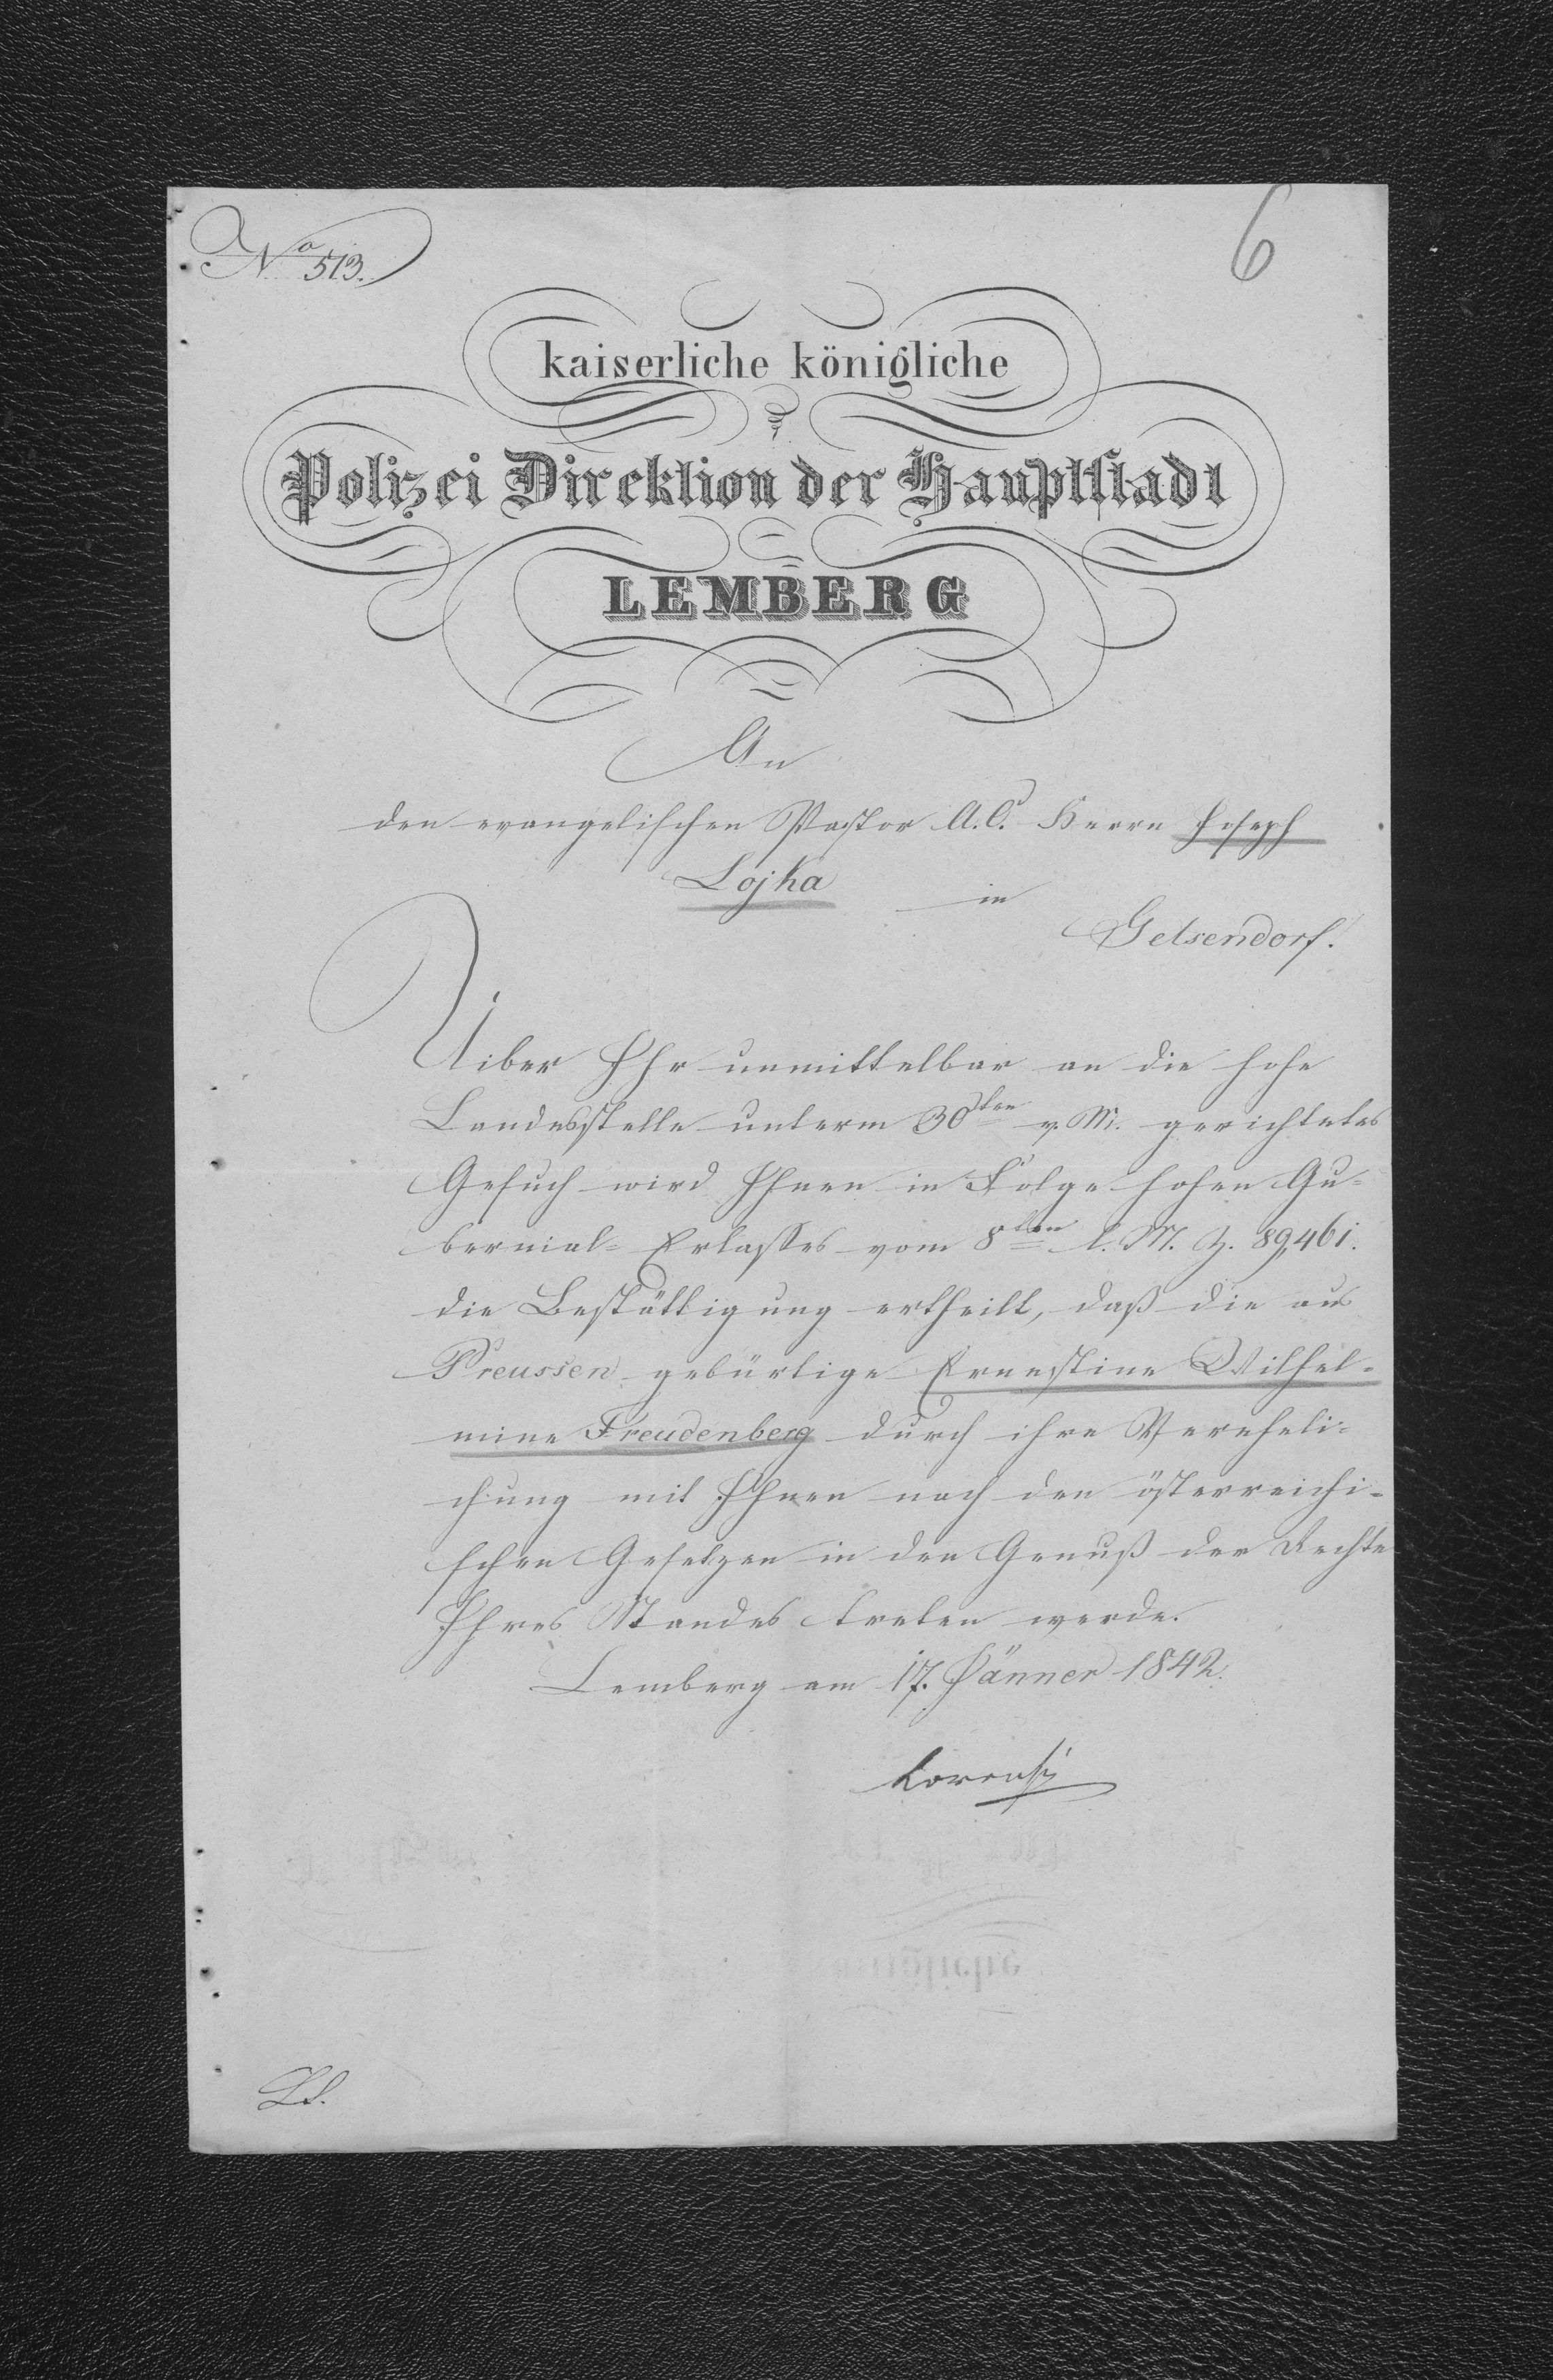 No 513.
6
kaiserliche königliche
Polizei Direktion der Hauptstadt
LEMBERG
An
den evangelischen Pastor A. C. Herrn Joseph
Lojka in
Gelsendorf.
Uiber Ihr unmittelbar an die hohe
Landesstelle unterm 30ten v. M. gerichtetes
Gesuch wird Ihnen in Folge hohen Gu=
bernial= Erlasses vom 8ten l. M. Z. 89,461.
die Bestättigung ertheilt, daß die aus
Preussen gebürtige Ernestine Wilhel=
mine Freudenberg durch ihre Vereheli=
chung mit Ihnen nach den österreichi=
schen Gesetzen in den Genuß der Rechte
Ihres Standes treten werde.
Lemberg am 17. Jänner 1842.